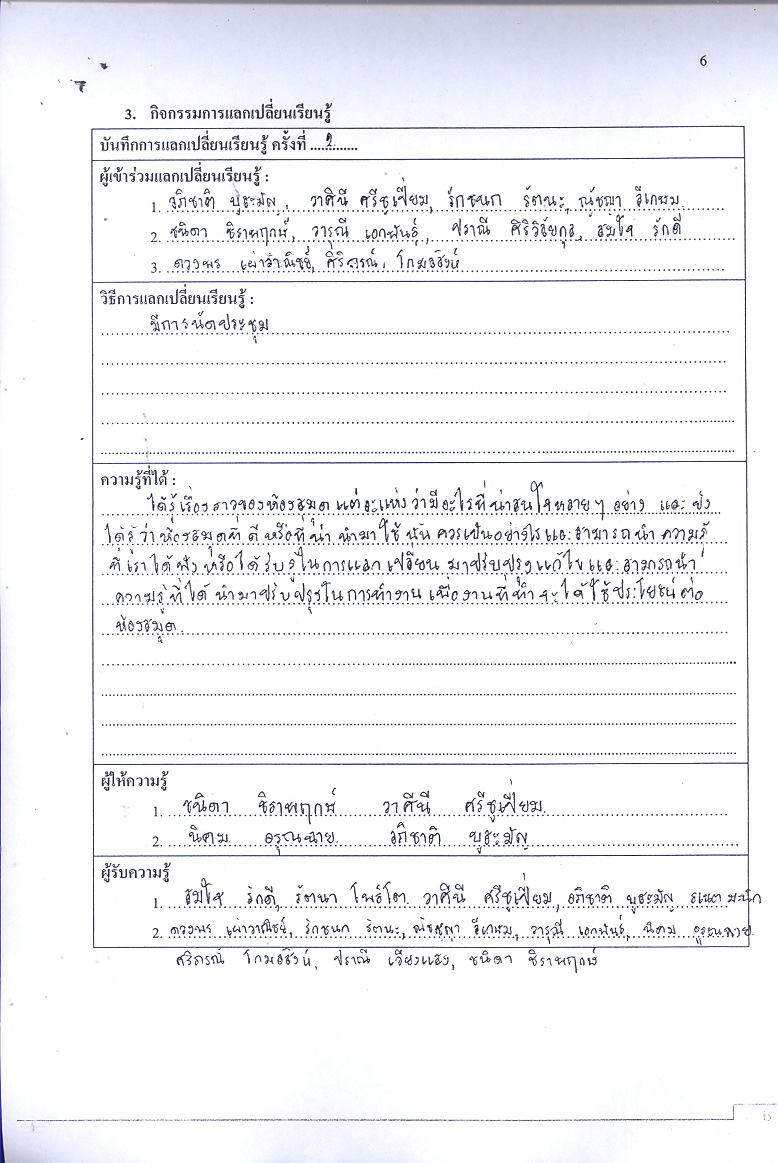 6
3. กิจกรรมการแลกเปลี่ยนเรียนรู้
บันทึกการแลกเปลี่ยนเรียนรู้ ครั้งที่ ....2.......
ผู้เข้าร่วมแลกเปลี่ยนเรียนรู้ :
1. อภิชาติ บูระมัญ, วาศินี ศรีชูเปี่ยม, รักชนก รัตนะ, ณัชญา
2. ชนิดา ชิราพฤกษ์, วารุณี เอกพันธุ์, ปราณี ศิริวิริยกุล, สมใจ รักดี
3. ดวงพร เผ่าวาณิชย์, ศิริภรณ์, โกมลสิงห์
วิธีการแลกเปลี่ยนเรียนรู้ :
มีการนัดประชุม
ความรู้ที่ได้ :
ได้รู้เรื่องราวของห้องสมุดแต่ละแห่งว่ามีอะไรที่น่าสนใจหลายๆ อย่าง และยัง
ได้รู้ว่าห้องสมุดที่ดี หรือที่น่า นำมาใช้ นั้น ควรเป็นอย่างไรและสามารถนำ ความรู้
ที่เราได้ฟัง หรือได้รับรู้ในการแลกเปลี่ยน มาปรับปรุงแก้ไขและสามารถนำ
ความรู้ที่ได้ นำมาปรับปรุงในการทำงาน เพื่องานที่ทำจะได้ใช้ประโยชน์ต่อ
ห้องสมุด.
ผู้ให้ความรู้
1. ชนิดา ชิราพฤกษ์ วาศินี ศรีชูเปี่ยม
2. นิคม อรุณฉาย อภิชาติ บูระมัญ
ผู้รับความรู้
1. สมใจ รักดี, รัตนา โพธิ์โต วาศินี ศรีชูเปี่ยม, อภิชาติ บูระมัญ
2. ดวงพร เผ่าวาณิชย์, รักชนก รัตนะ, ณัชญา วารุณี เอกพันธุ์, นิคม อรุณฉาย
ศริภรณ์ โกมลสิงห์, ปราณี เวียงแสง, ชนิดา ชิราพฤกษ์